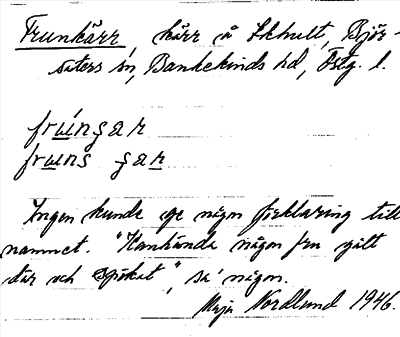 Frunkärr, kärr å Ekhult, Björ-
säters sn, Bankekinds hd, Östg. l.
frúngar
fruns gar
Ingen kunde ge någon förklaring till
namnet. "Kankända någon fru gått
där och spökat", sa' någon.
Maja Nordlund 1946.